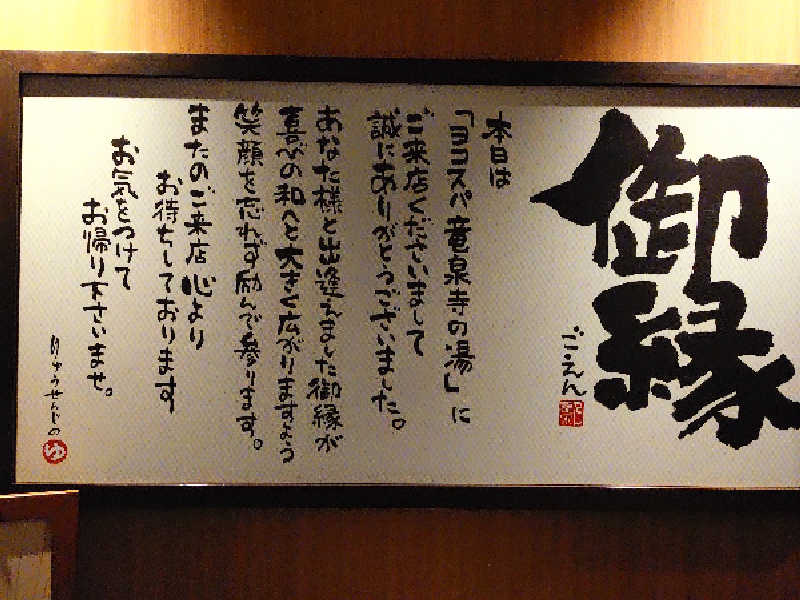 御縁
ごえん
本日は
「ヨコスパ竜泉寺の湯」に
ご来店くださいまして
誠にありがとうございました。
あなた様と出逢えました御縁が
喜びの和へと大きく広がりますよう
笑顔を忘れず励んで参ります。
またのご来店心より
お待ちしております
お気をつけて
お帰り下さいませ。
りゅうせんじの
ゆ